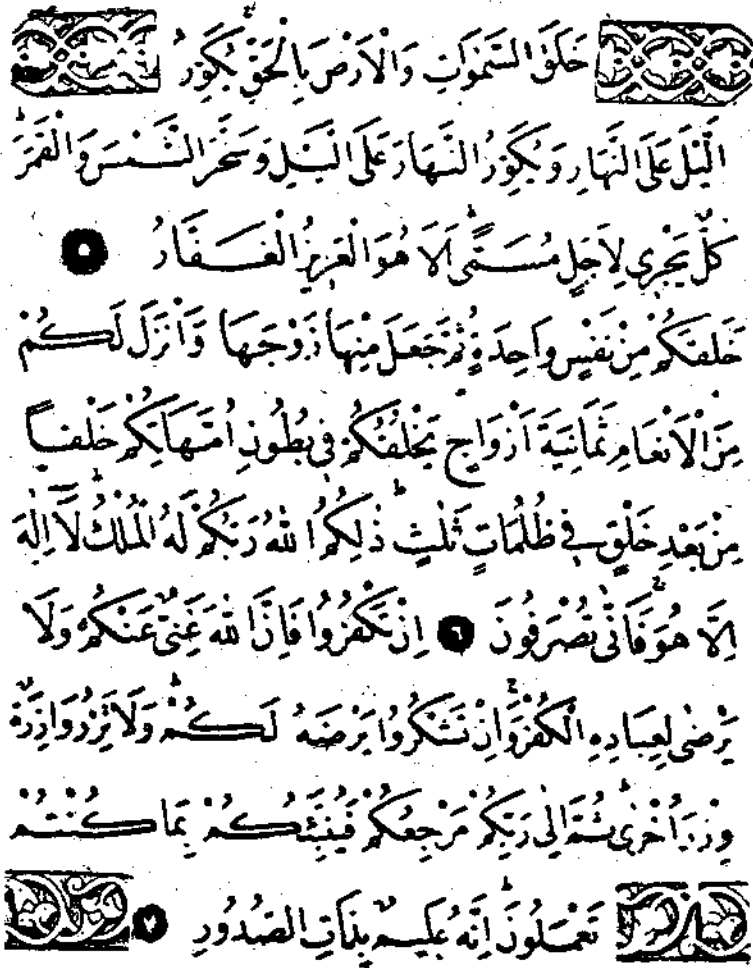 خَلَقَ السَّمٰوَاتِ وَالْاَرْضَ بِالْحَقِّۚ يُكَوِّرُ
الَّيْلَ عَلَى النَّهَارِ وَيُكَوِّرُ النَّهَارَ عَلَى الَّيْلِ وَسَخَّرَ الشَّمْسَ وَالْقَمَرَۜ
كُلٌّ يَجْرٖى لِاَجَلٍ مُسَمًّىۜ اَلَا هُوَ الْعَزٖيزُ الْغَفَّارُ ٥
خَلَقَكُمْ مِنْ نَفْسٍ وَاحِدَةٍ ثُمَّ جَعَلَ مِنْهَا زَوْجَهَا وَاَنْزَلَ لَكُمْ
مِنَ الْاَنْعَامِ ثَمَانِيَةَ اَزْوَاجٍۜ يَخْلُقُكُمْ فٖى بُطُونِ اُمَّهَاتِكُمْ خَلْقًا
مِنْ بَعْدِ خَلْقٍ فٖى ظُلُمَاتٍ ثَلٰثٍۜ ذٰلِكُمُ اللّٰهُ رَبُّكُمْ لَهُ الْمُلْكُۜ لَٓا اِلٰهَ
اِلَّا هُوَۚ فَاَنّٰى تُصْرَفُونَ ٦ اِنْ تَكْفُرُوا فَاِنَّ اللّٰهَ غَنِىٌّ عَنْكُمْ وَلَا
يَرْضٰى لِعِبَادِهِ الْكُفْرَۚ وَاِنْ تَشْكُرُوا يَرْضَهُ لَكُمْۜ وَلَا تَزِرُ وَازِرَةٌ
وِزْرَ اُخْرٰىۜ ثُمَّ اِلٰى رَبِّكُمْ مَرْجِعُكُمْ فَيُنَبِّئُكُمْ بِمَا كُنْتُمْ
تَعْمَلُونَۜ اِنَّهُ عَلٖيمٌ بِذَاتِ الصُّدُورِ ٧